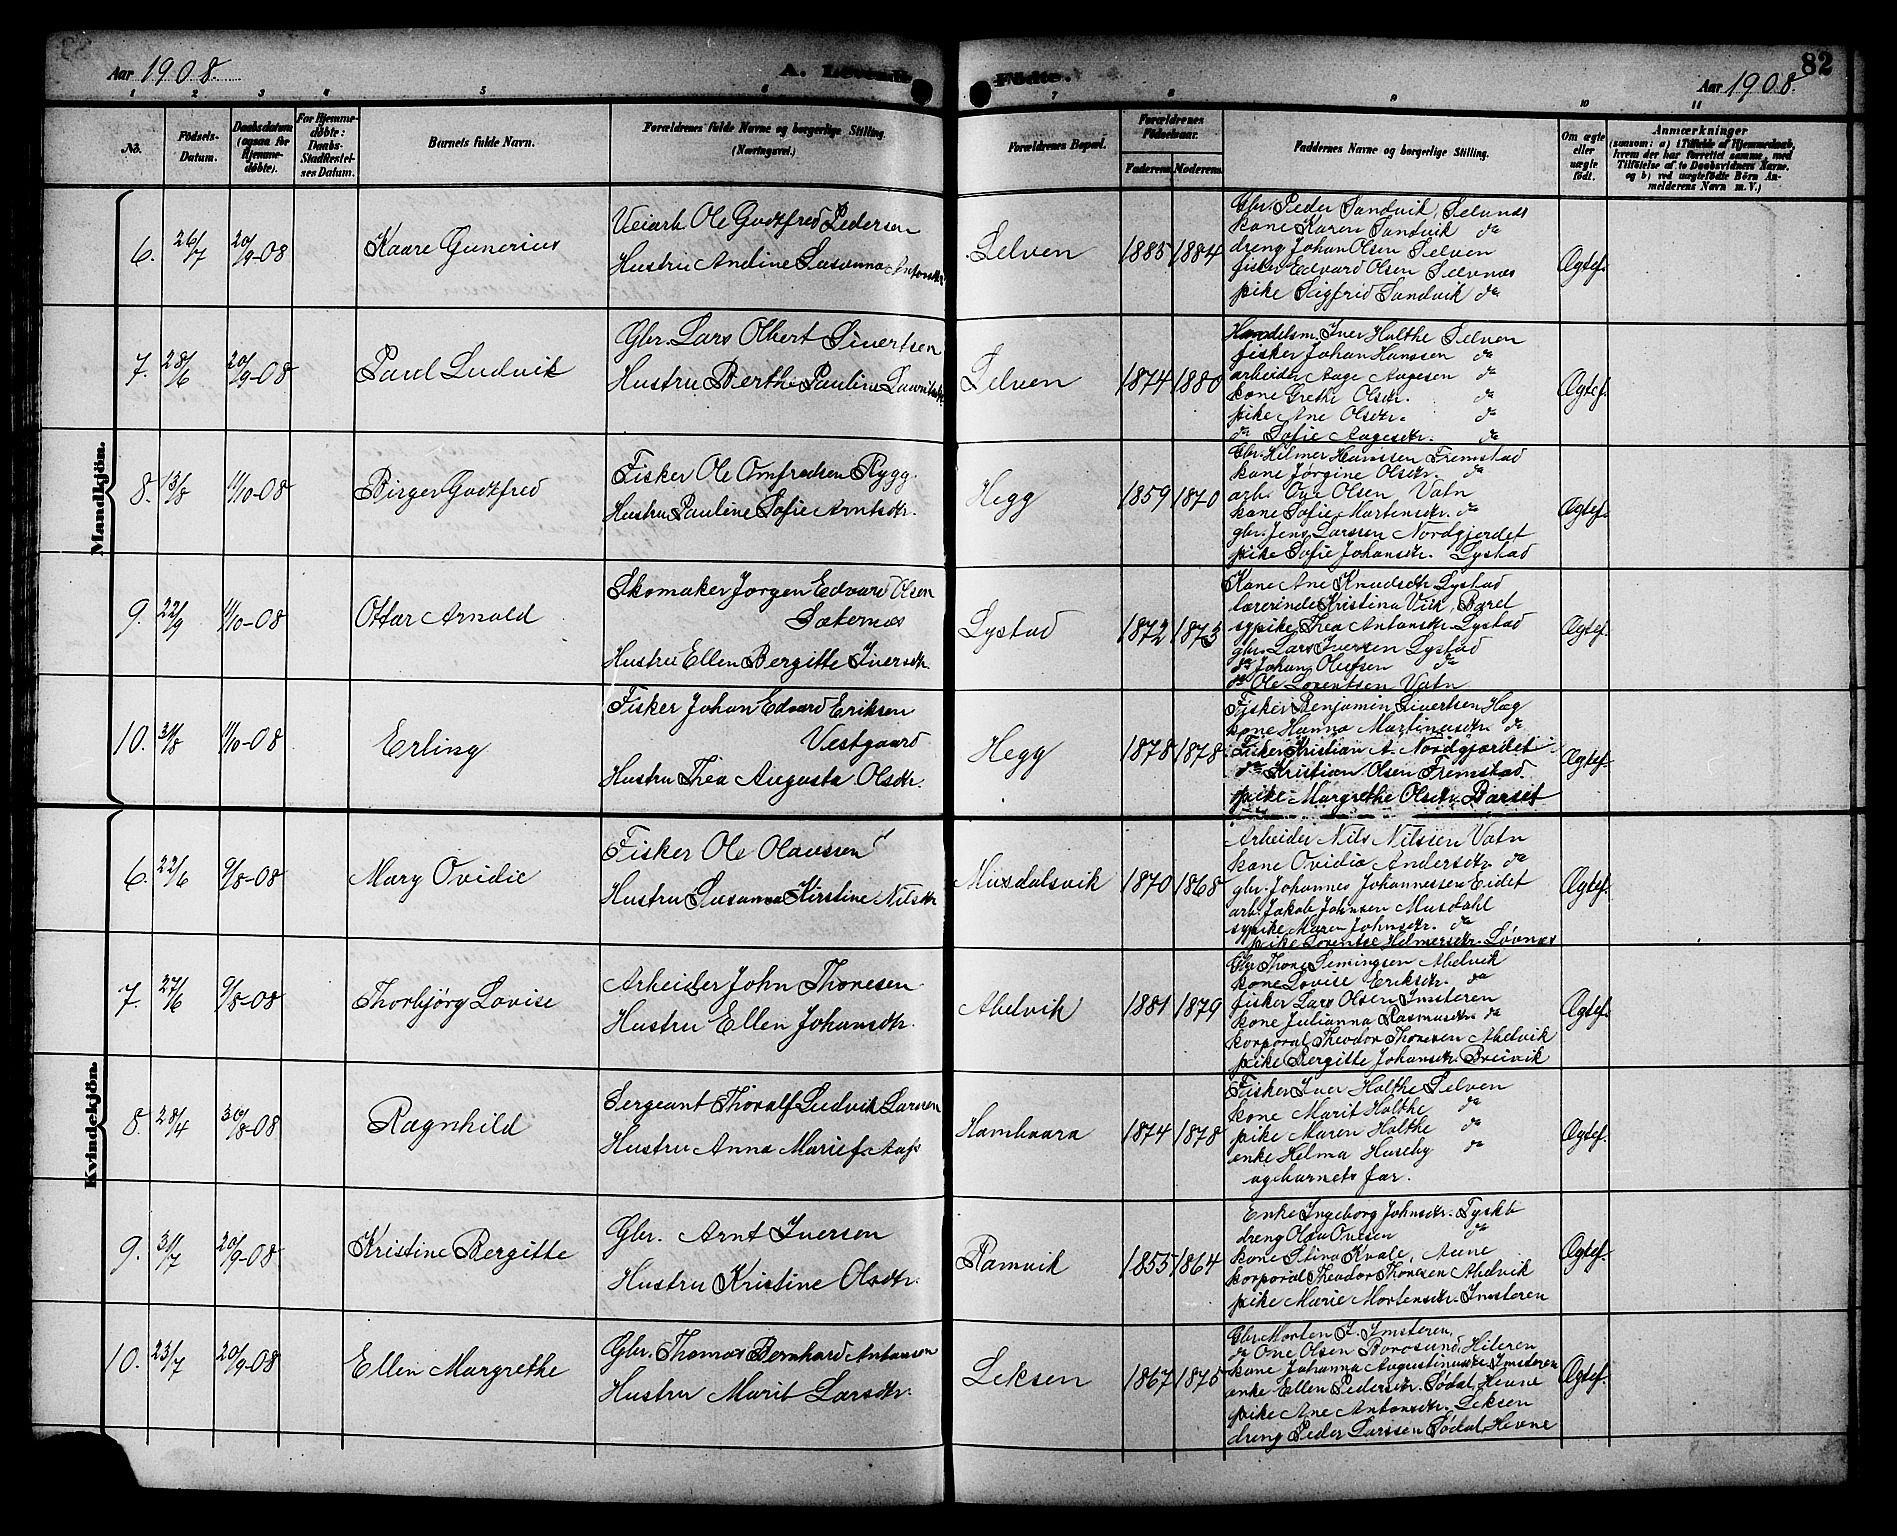 Aar 1908.
A. Levende
Fødte.
82
Aar 1908.
1 2 3 4 5 6 7 8 9 10 11
No.
Fødsels-
Datum.
Daabsdatum
(ogsaa for
Hjemme-
døbte).
For Hjemme-
døbte:
Daabs-
Stadfestel-
ses Datum.
Barnets fulde Navn.
Forældrenes fulde Navne og borgerlige Stilling.
(Næringsvei.)
Forældrenes Bopæl.
Forældrenes
Fødselsaar.
Faderens. Moderens.
Faddernes Navne og borgerlige Stilling.
Om ægte
eller
uægte
født.
Anmærkninger
(saasom: a) i Tilfælde af Hjemmedaab,
hvem der har forrettet samme, med
Tilføielse af to Daabsvidners Navne,
og b) ved uægtefødte Börn An-
melderens Navn m. V.)
Mandkjön.
6. 26/7 20/9-08
Kaare Gunerius
Veiarb. Ole Godtfred Pedersen
Hustru Andine Susanna Antonsdtr.
Selven
1885 1884
Gbr. Peder Sandvik, Selvnes
kone Karen Sandvik do
dreng Johan Olsen Selven
fisker Edvard Olsen Selvnes
pike Sigfrid Sandvik do
Ægtef.
7. 28/6 20/9-08
Paul Ludvik
Gbr. Lars Olbert Sivertsen
Hustru Berthe Pauline Lauritsdtr.
Selven
1874 1880
Handelsm. Iver Holthe Selven
fisker Johan Hanssen do
arbeider Aage Aagesen do
kone Grethe Olsdtr. do
pike Ane Olsdtr. do
do Sofie Aagesdtr. do
Ægtef.
8. 13/8 11/10-08
Birger Godtfred
Fisker Ole Arnfredsen Rygg.
Hustru Pauline Sofie Arntsdtr.
Hegg
1859 1870
Gbr. Hilmer Hanssen Fremstad
kone Jørgine Olsdtr. do
arb. Ove Olsen Vatn
kone Sofie Martensdtr. do
gbr. Jens Larssen Nordgjerdet
pike Sofie Johansdtr. Lystad
Ægtef.
9. 22/9 11/10-08
Ottar Arnold
Skomaker Jørgen Edvard Olsen
Sæternes
Hustru Ellen Bergitte Iversdtr.
Lystad
1872 1873
Kone Ane Knudsdtr. Lystad
lærerinde Kristina Vik, Baret
sypike Thea Antonsdtr. Lystad
gbr. Lars Iversen Lystad
do Johan Olufsen do
do Ole Lorentsen Vatn
Ægtef.
10. 31/8 11/10-08
Erling
Fisker Johan Edvard Eriksen
Vestgaard
Hustru Thea Augusta Olsdtr.
Hegg
1878 1878
Fisker Benjamin Sivertsen Hæg
kone Hanna Martinusdtr. do
Fisker Kristian A. Nordgjærdet
do Kristian Olsen Fremstad
pike Margrethe Olsdtr. Barset
Ægtef.
Kvindekjön.
6. 22/6 9/8-08
Mary Ovidie
Fisker Ole Olaussen
Hustru Susanna Kirstine Nilsdtr.
Musdalsvik
1870 1868
Arbeider Nils Nilsen Vatn
kone Ovidia Andersdtr. do
gbr. Johannes Johannessen Eidet
arb. Jakob Johnsen Musdahl
sypike Maren Johnsdtr. do
pike Lorentse Helmersdtr. Løvnes
Ægtef.
7. 27/6 9/8-08
Thorbjørg Lovise
Arbeider John Thonesen
Hustru Ellen Johansdtr.
Abelvik
1881 1879
Gbr. Thone Semingsen Abelvik
kone Lovise Eriksdtr. do
fisker Lars Olsen Imsteren
kone Julianna Rasmusdtr. do
korporal Theodor Thonesen Abelvik
pike Bergitte Johansdtr. Breivik
Ægtef.
8. 28/4 30/8-08
Ragnhild
Sergeant Thoralf Ludvik Larsen
Hustru Anna Marie f. Aas
Hambaara
1874 1878
Fisker Iver Holthe Selven
kone Marit Holthe do
pike Maren Holthe do
enke Helma Huseby do
og barnets far.
Ægtef.
9. 31/7 20/9-08
Kristine Bergitte
Gbr. Arnt Iversen
Hustru Kristine Olsdtr.
Ramvik
1855 1864
Enke Ingeborg Johnsdtr. Tyskb
dreng Olav Ovesen do
kone Stina Kvale, Aune
korporal Theodor Thonesen Abelvik
pike Marie Mortensdtr. Imsteren
Ægtef.
10. 23/7 20/9-08
Ellen Margrethe
Gbr. Thomas Bernhard Antonsen
Hustru Marit Larsdtr.
Leksen
1867 1875
Gbr. Morten J. Imsteren,
do One Olsen Borosund, Hiteren
kone Johanna Augustinusdtr. Imsteren
enke Ellen Pedersdtr. Sødal, Hevne
pike Ane Antonsdtr. Leksen
dreng Peder Larssen Sødal, Hevne
Ægtef.